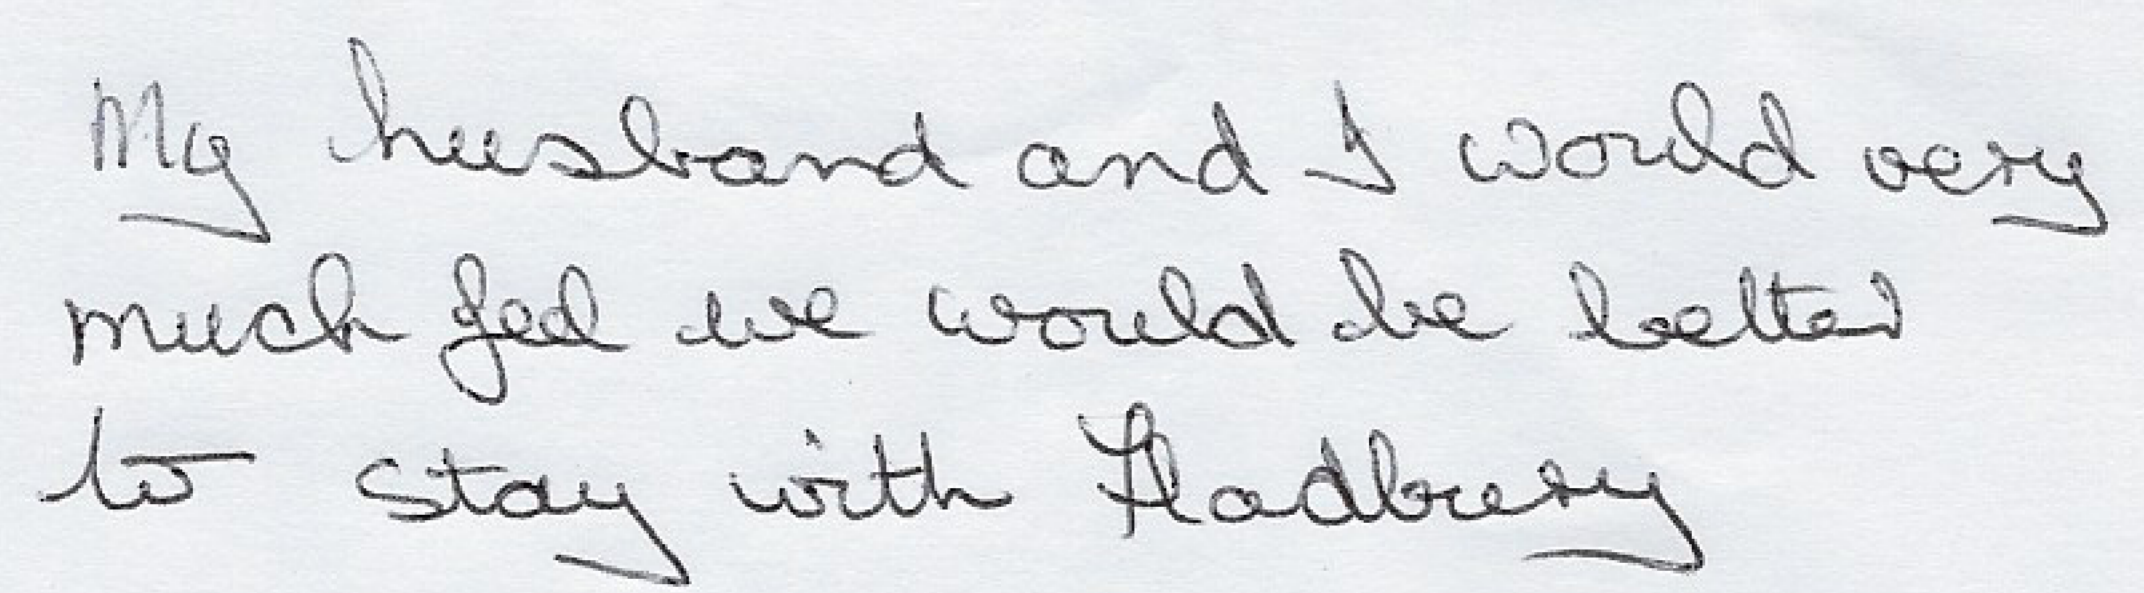 My husband and I would very
much feel we would be better
to stay with Fladbury